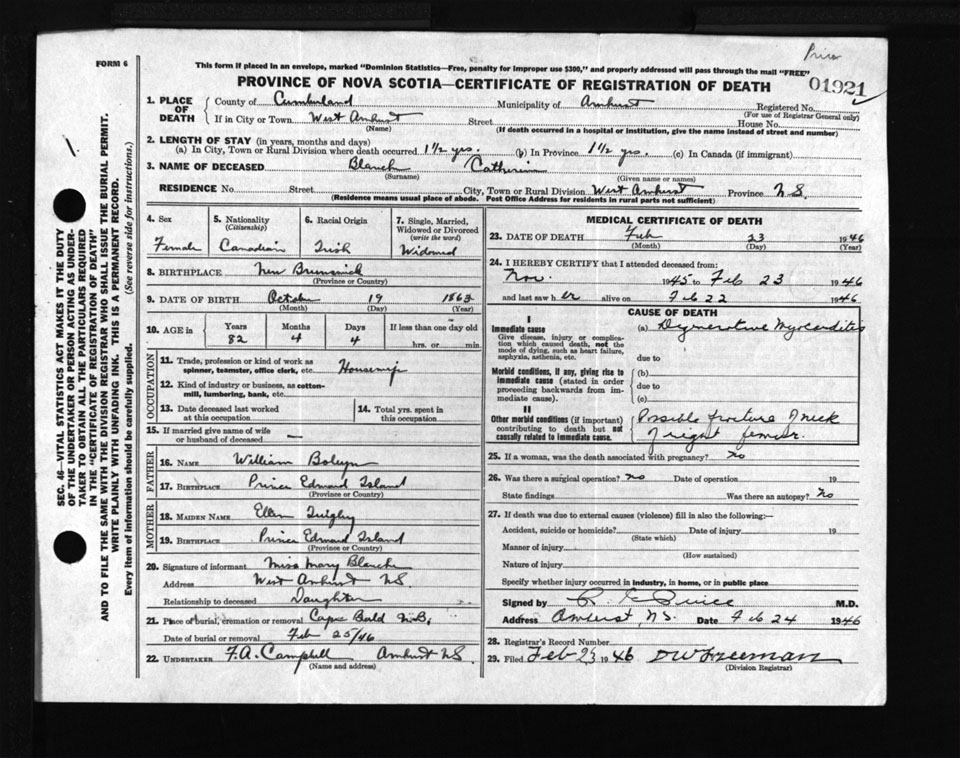 Price
FORM 6
This form if placed in an envelope, marked "Dominion Statistics—Free, penalty for improper use $300," and properly addressed will pass through the mail "FREE"
PROVINCE OF NOVA SCOTIA—CERTIFICATE OF REGISTRATION OF DEATH
01921
1. PLACE OF DEATH
County of Cumberland Municipality of Amherst Registered No.
(For use of Registrar General only)
If in City or Town West Amherst Street House No.
(Name) (If death occurred in a hospital or institution, give the name instead of street and number)
2. LENGTH OF STAY (in years, months and days)
(a) In City, Town or Rural Division where death occurred 1 1/2 yrs. (b) In Province 1 1/2 yrs. (c) In Canada (if immigrant)
3. NAME OF DECEASED Blanch Catherine
(Surname) (Given name or names)
RESIDENCE No. Street City, Town or Rural Division West Amherst Province N.S.
(Residence means usual place of abode. Post Office Address for residents in rural parts not sufficient)
4. Sex Female
5. Nationality (Citizenship) Canadian
6. Racial Origin Irish
7. Single, Married, Widowed or Divorced (write the word) Widowed
8. BIRTHPLACE New Brunswick
(Province or Country)
9. DATE OF BIRTH October 19 1863
(Month) (Day) (Year)
10. AGE in Years Months Days If less than one day old
82 4 4 hrs. or min.
OCCUPATION
11. Trade, profession or kind of work as spinner, teamster, office clerk, etc. Housewife
12. Kind of industry or business, as cotton-mill, lumbering, bank, etc.
13. Date deceased last worked at this occupation
14. Total yrs. spent in this occupation
15. If married give name of wife or husband of deceased —
FATHER
16. NAME William Boleyn
17. BIRTHPLACE Prince Edward Island
(Province or Country)
MOTHER
18. MAIDEN NAME Ellen
19. BIRTHPLACE Prince Edward Island
(Province or Country)
20. Signature of informant Miss Mary Blanch
Address West Amherst N.S.
Relationship to deceased Daughter
21. Place of burial, cremation or removal Cape Bald N.B.
Date of burial or removal Feb 25/46
22. UNDERTAKER F.A. Campbell Amherst N.S.
(Name and address)
MEDICAL CERTIFICATE OF DEATH
23. DATE OF DEATH Feb 23 1946
(Month) (Day) (Year)
24. I HEREBY CERTIFY that I attended deceased from:
Nov. 1945 to Feb 23 1946
and last saw her alive on Feb 22 1946
CAUSE OF DEATH
I
Immediate cause
Give disease, injury or complication which caused death, not the mode of dying, such as heart failure, asphyxia, asthenia, etc.
(a) Degenerative Myocarditis
due to
Morbid conditions, if any, giving rise to immediate cause (stated in order proceeding backwards from immediate cause).
(b)
due to
(c)
II
Other morbid conditions (if important) contributing to death but not causally related to immediate cause.
Possible fracture of neck
of right femur.
25. If a woman, was the death associated with pregnancy? no
26. Was there a surgical operation? no Date of operation 19
State findings Was there an autopsy? no
27. If death was due to external causes (violence) fill in also the following:—
Accident, suicide or homicide? Date of injury 19
(State which)
Manner of injury
(How sustained)
Nature of injury
Specify whether injury occurred in industry, in home, or in public place
Signed by Price M.D.
Address Amherst, N.S. Date Feb 24 1946
28. Registrar's Record Number
29. Filed Feb 25 1946 DW Freeman
(Division Registrar)
SEC. 46—VITAL STATISTICS ACT MAKES IT THE DUTY
OF THE UNDERTAKER OR PERSON ACTING AS UNDER-
TAKER TO OBTAIN ALL THE PARTICULARS REQUIRED
IN THE "CERTIFICATE OF REGISTRATION OF DEATH"
AND TO FILE THE SAME WITH THE DIVISION REGISTRAR WHO SHALL ISSUE THE BURIAL PERMIT.
WRITE PLAINLY WITH UNFADING INK. THIS IS A PERMANENT RECORD.
Every item of information should be carefully supplied. (See reverse side for instructions.)